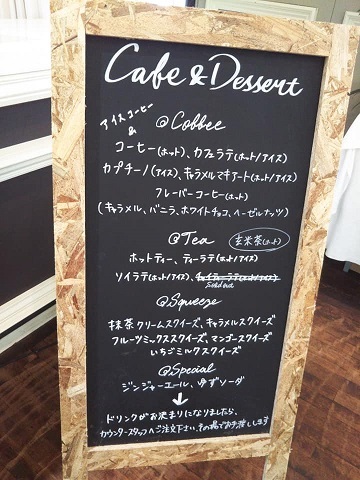 Cafe & Dessert
アイスコーヒー
&
@Coffee
コーヒー(ホット)、カフェラテ(ホット/アイス)
カプチーノ(アイス)、キャラメルマキアート(ホット/アイス)
フレーバーコーヒー(ホット)
(キャラメル、バニラ、ホワイトチョコ、ヘーゼルナッツ)
@Tea
玄米茶(ホット)
ホットティー、ティーラテ(ホット/アイス)
ソイラテ(ホット/アイス)、チャイティーラテ(ホット/アイス)
Sold out
@Squeeze
抹茶クリームスクイーズ、キャラメルスクイーズ
フルーツミックススクイーズ、マンゴースクイーズ
いちごミルクスクイーズ
@Special
ジンジャーエール、ゆずソーダ
↓
ドリンクがお決まりになりましたら、
カウンタースタッフへご注文下さい。その場でお渡しします